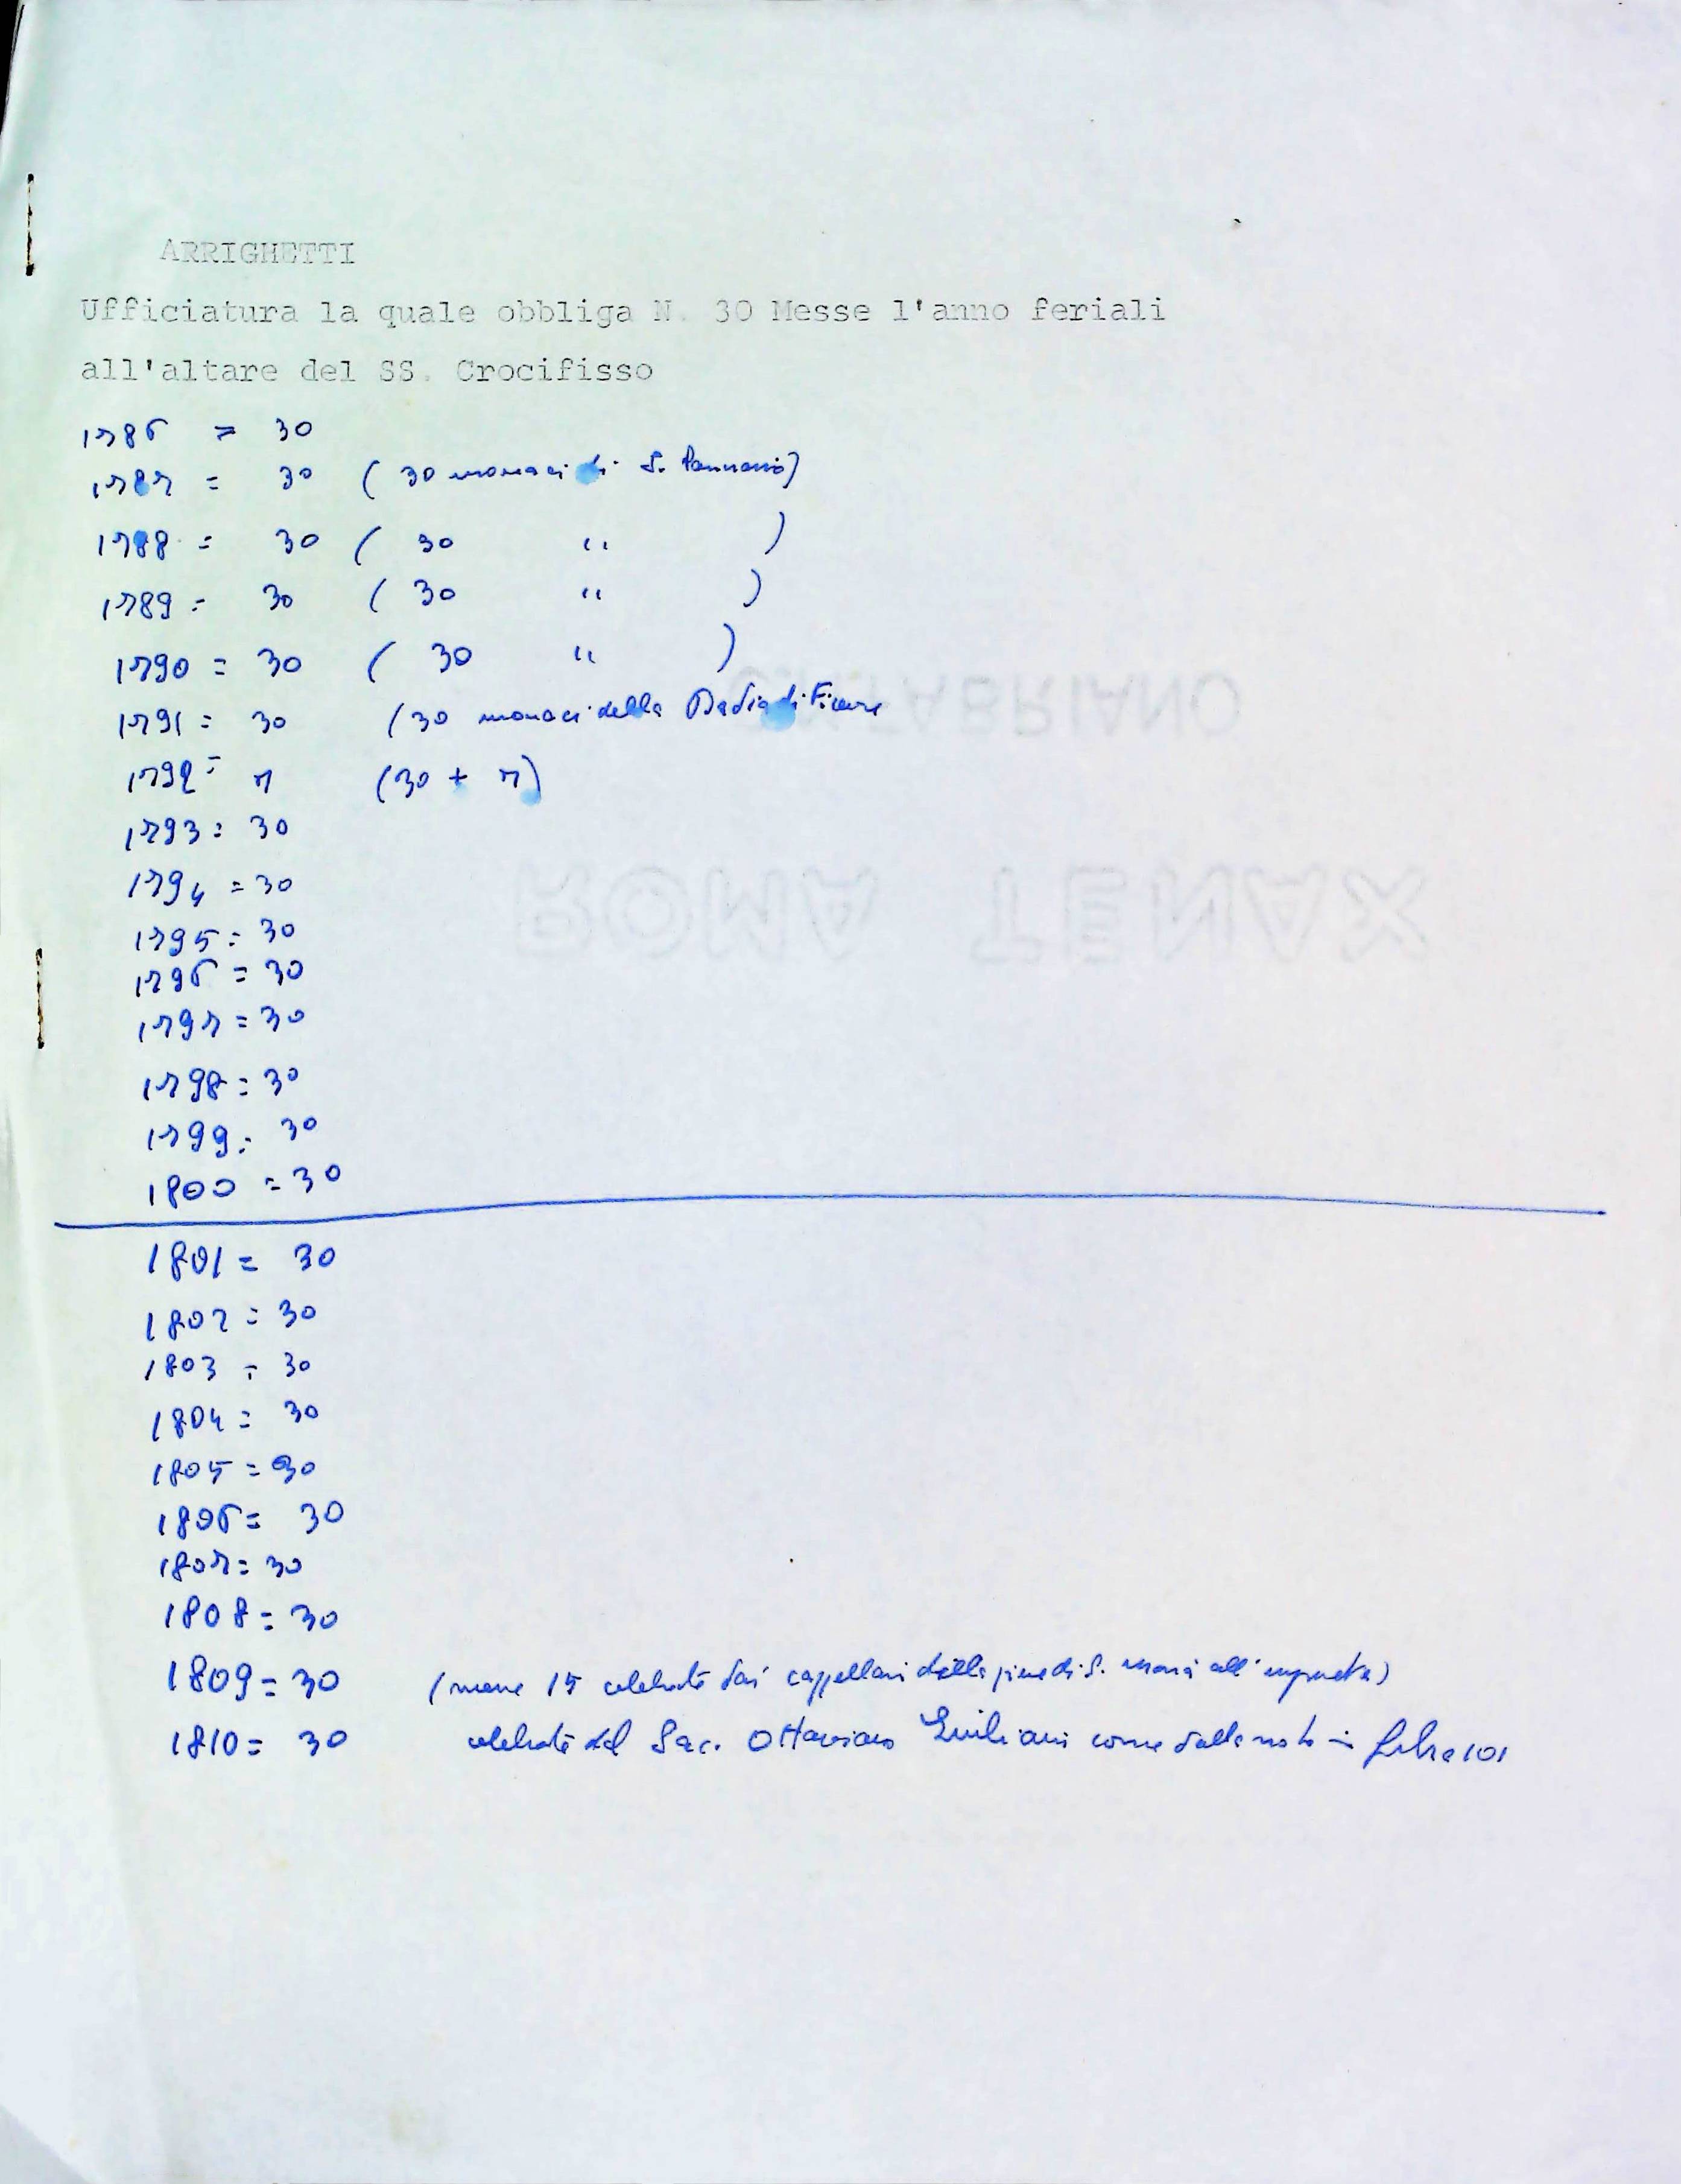 ARRIGHETTI
Ufficiatura la quale obbliga N. 30 Messe l'anno feriali
all'altare del SS. Crocifisso
1786 = 30
1787 = 30 ( 30 monaci di S.
1788 = 30 ( 30 " )
1789 = 30 ( 30 " )
1790 = 30 ( 30 " )
1791 = 30 (30 monaci della Badia di
1792 = 7 (30 + 7)
1793 = 30
1794 = 30
1795 = 30
1796 = 30
1797 = 30
1798 = 30
1799 = 30
1800 = 30
1801 = 30
1802 = 30
1803 = 30
1804 = 30
1805 = 30
1806 = 30
1807 = 30
1808 = 30
1809 = 30 (messe 15 celebrate dai cappellani della pieve di S. Maria all'Impruneta)
1810 = 30 celebrate dal Sac. Ottaviano come dalla nota in filza 101
C.M. FABRIANO
ROMA TENAX